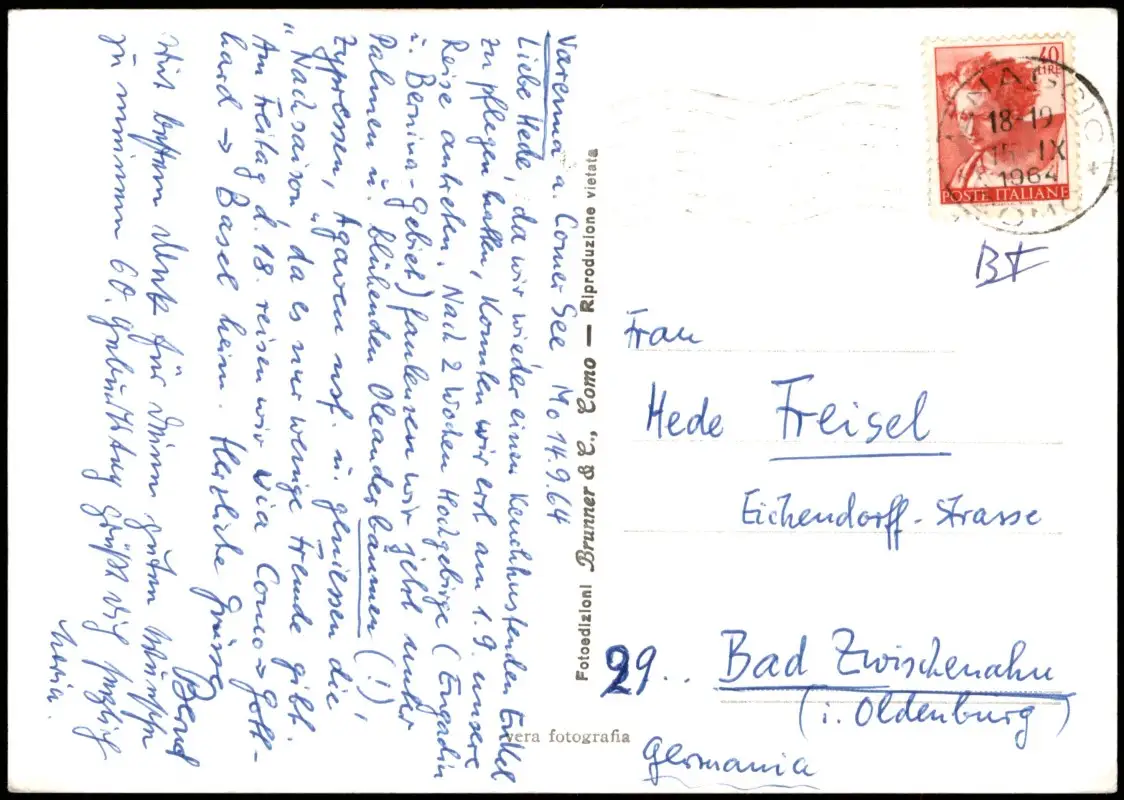 Varenna a. Comer See Mo 14.9.64
Liebe Hede, da wir wieder einen keuchhustenden Enkel
zu pflegen hatten, konnten wir erst am 1.9. unsere
Reise antreten. Nach 2 Wochen Hochgebirge (Engadin
u. Bernina-Gebiet) faulenzen wir jetzt unter
Palmen u. blühenden Oleanderbäumen (!),
Zypressen, Agaven usf. u. geniessen die
"Nachsaison", da es nur wenige Fremde gibt.
Am Freitag d. 18. reisen wir via Como → Gott-
hard → Basel heim. Herzliche Grüsse
Bernd
Mit bestem Dank für Deinen guten Wünsche
zu meinem 60. Geburtstag grüßt Dich herzlich
Maria.
Fotoedizioni Brunner & C., Como — Riproduzione vietata
vera fotografia
40
LIRE
POSTE ITALIANE
18-19
15 IX
1964
COMO
BF
Frau
Hede Freisel
Eichendorff-Strasse
29.. Bad Zwischenahn
(i. Oldenburg)
Germania